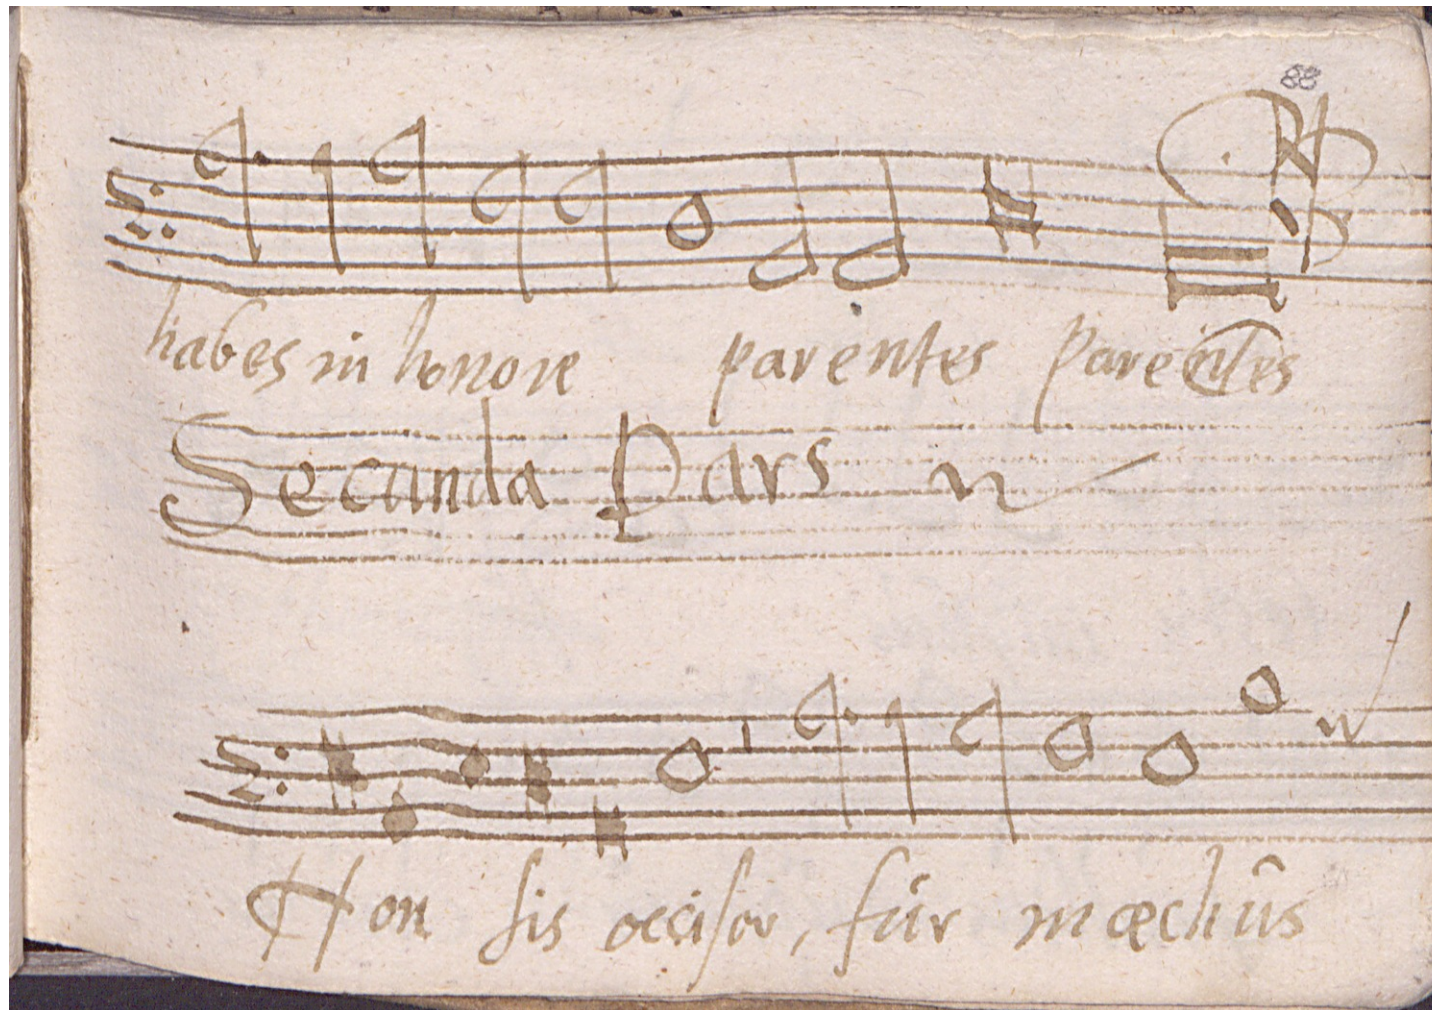 88
habes in honore parentes Parentes
Secunda Pars
Non sis occisor, fur mœchus